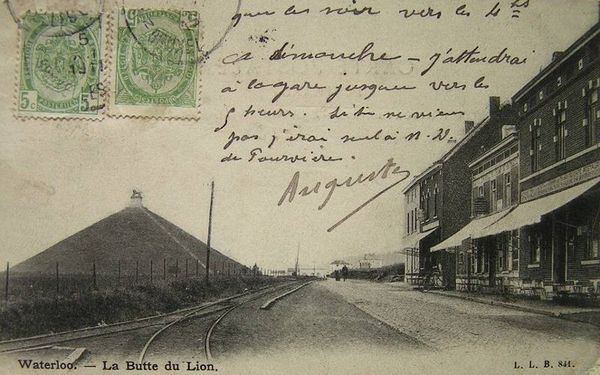 que le soir vers les 4 hs
ce dimanche – j'attendrai
à la gare jusque vers les
5 heures. Si tu ne viens
pas j'irai seul à N. D.
de Fourvière.
Auguste
5c 5c
Waterloo. — La Butte du Lion.
L. L. B. 841.